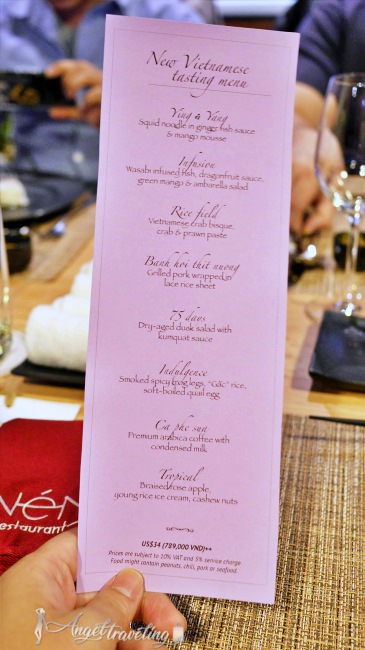 New Vietnamese
tasting menu
Ying & Yang
Squid noodle in ginger fish sauce
& mango mousse
Infusion
Wasabi infused fish, dragonfruit sauce,
green mango & ambarella salad
Rice field
Vietnamese crab bisque,
crab & prawn paste
Banh hoi thit nuong
Grilled pork wrapped in
lace rice sheet
75 days
Dry-aged dusk salad with
kumquat sauce
Indulgence
Smoked spicy frog legs, "Gấc" rice,
soft-boiled quail egg
Ca phe sua
Premium arabica coffee with
condensed milk
Tropical
Braised rose apple,
young rice ice cream, cashew nuts
US$34 (789,000 VND)++
Prices are subject to 10% VAT and 5% service charge
Food might contain peanuts, chili, pork or seafood
nén
restaurant
Angel traveling